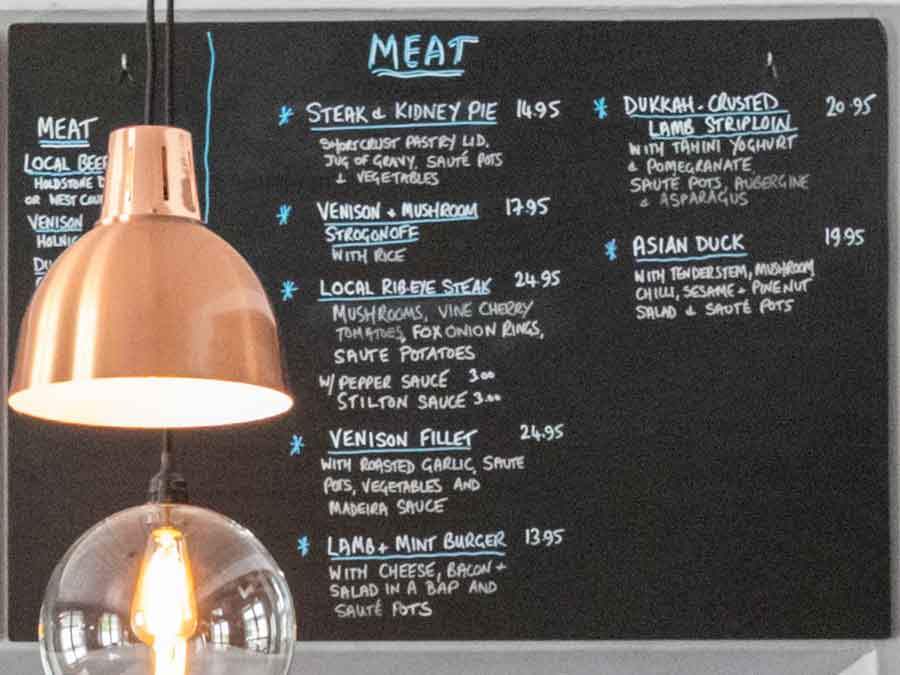 MEAT
LOCAL BEEF
HOLDSTONE
OR WEST
VENISON
MEAT
* STEAK & KIDNEY PIE 14.95
SHORTCRUST PASTRY LID,
JUG OF GRAVY, SAUTÉ POTS
& VEGETABLES
* VENISON + MUSHROOM 17.95
STROGONOFF
WITH RICE
* LOCAL RIBEYE STEAK 24.95
MUSHROOMS, VINE CHERRY
TOMATOES, FOX ONION RINGS,
SAUTE POTATOES
W/ PEPPER SAUCE 3.00
STILTON SAUCE 3.00
* VENISON FILLET 24.95
WITH ROASTED GARLIC, SAUTE
POTS, VEGETABLES AND
MADEIRA SAUCE
* LAMB + MINT BURGER 13.95
WITH CHEESE, BACON +
SALAD IN A BAP AND
SAUTÉ POTS
* DUKKAH-CRUSTED 20.95
LAMB STRIPLOIN
WITH TAHINI YOGHURT
& POMEGRANATE,
SAUTÉ POTS, AUBERGINE
& ASPARAGUS
* ASIAN DUCK 19.95
WITH TENDERSTEM, MUSHROOM
CHILLI, SESAME + PINENUT
SALAD & SAUTÉ POTS